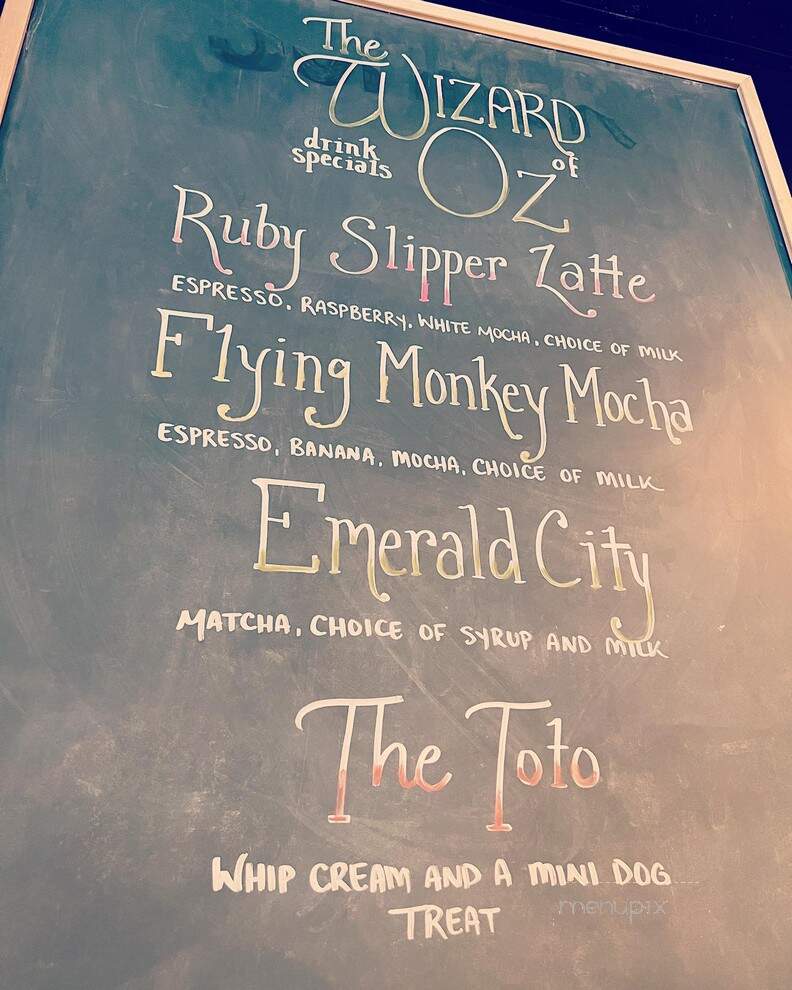 The
WIZARD
drink
specials
of
OZ
Ruby Slipper Latte
ESPRESSO, RASPBERRY, WHITE MOCHA, CHOICE OF MILK
Flying Monkey Mocha
ESPRESSO, BANANA, MOCHA, CHOICE OF MILK
Emerald City
MATCHA, CHOICE OF SYRUP AND MILK
The Toto
WHIP CREAM AND A MINI DOG
TREAT
menupix